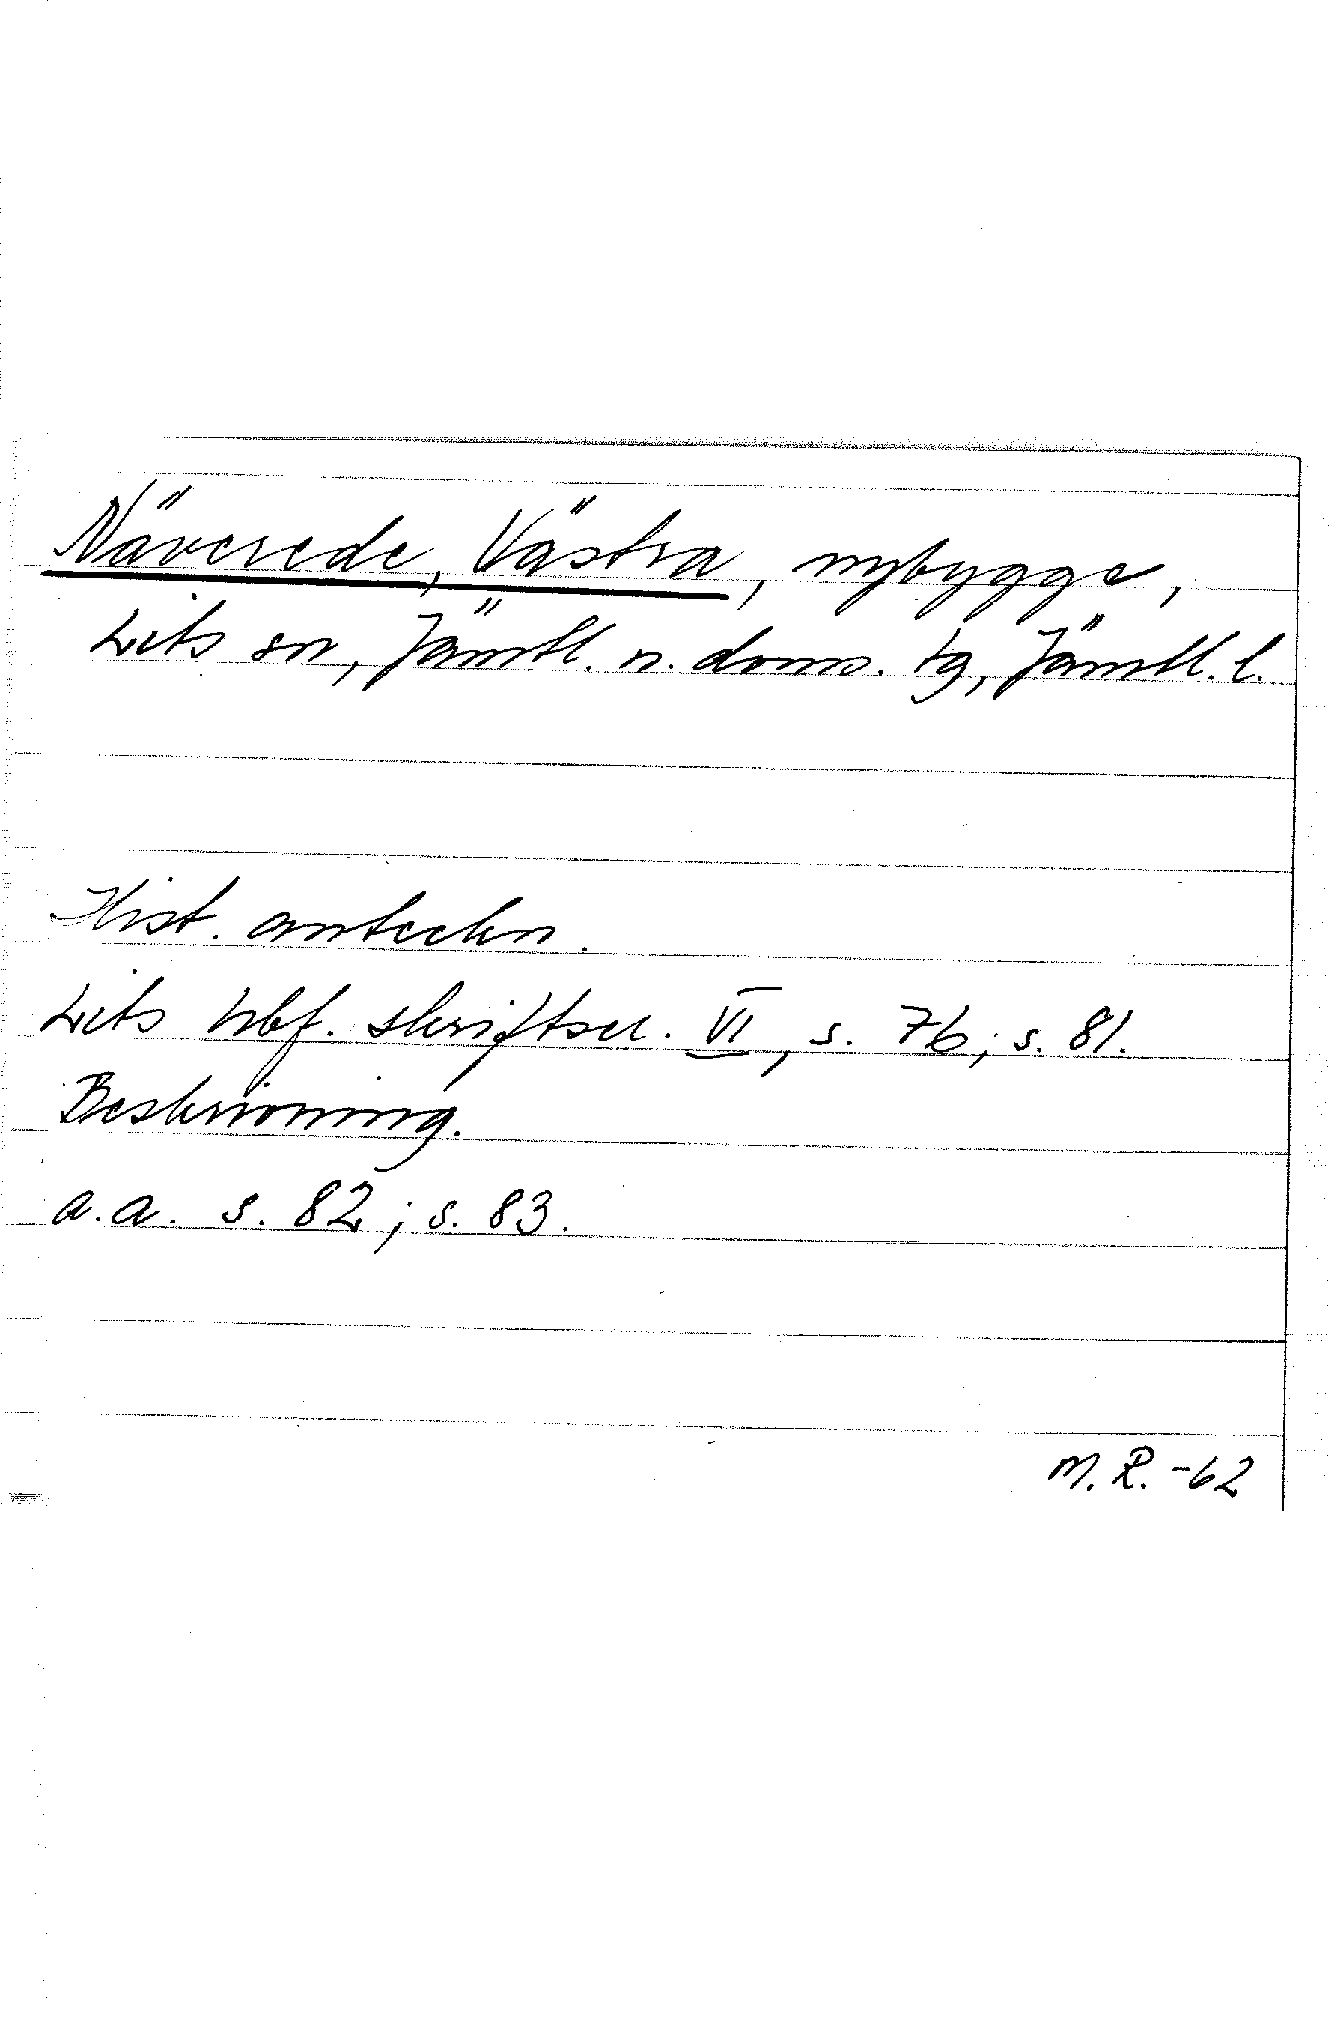 Näverede, Västra, nybygge,
Lits sn, Jämtl. n. doms. tg, Jämtl. l.
Hist. anteckn.
Lits hbf. skriftser. VI, s. 76; s. 81.
Beskrivning.
a.a. s. 82; s. 83.
M.R. -62